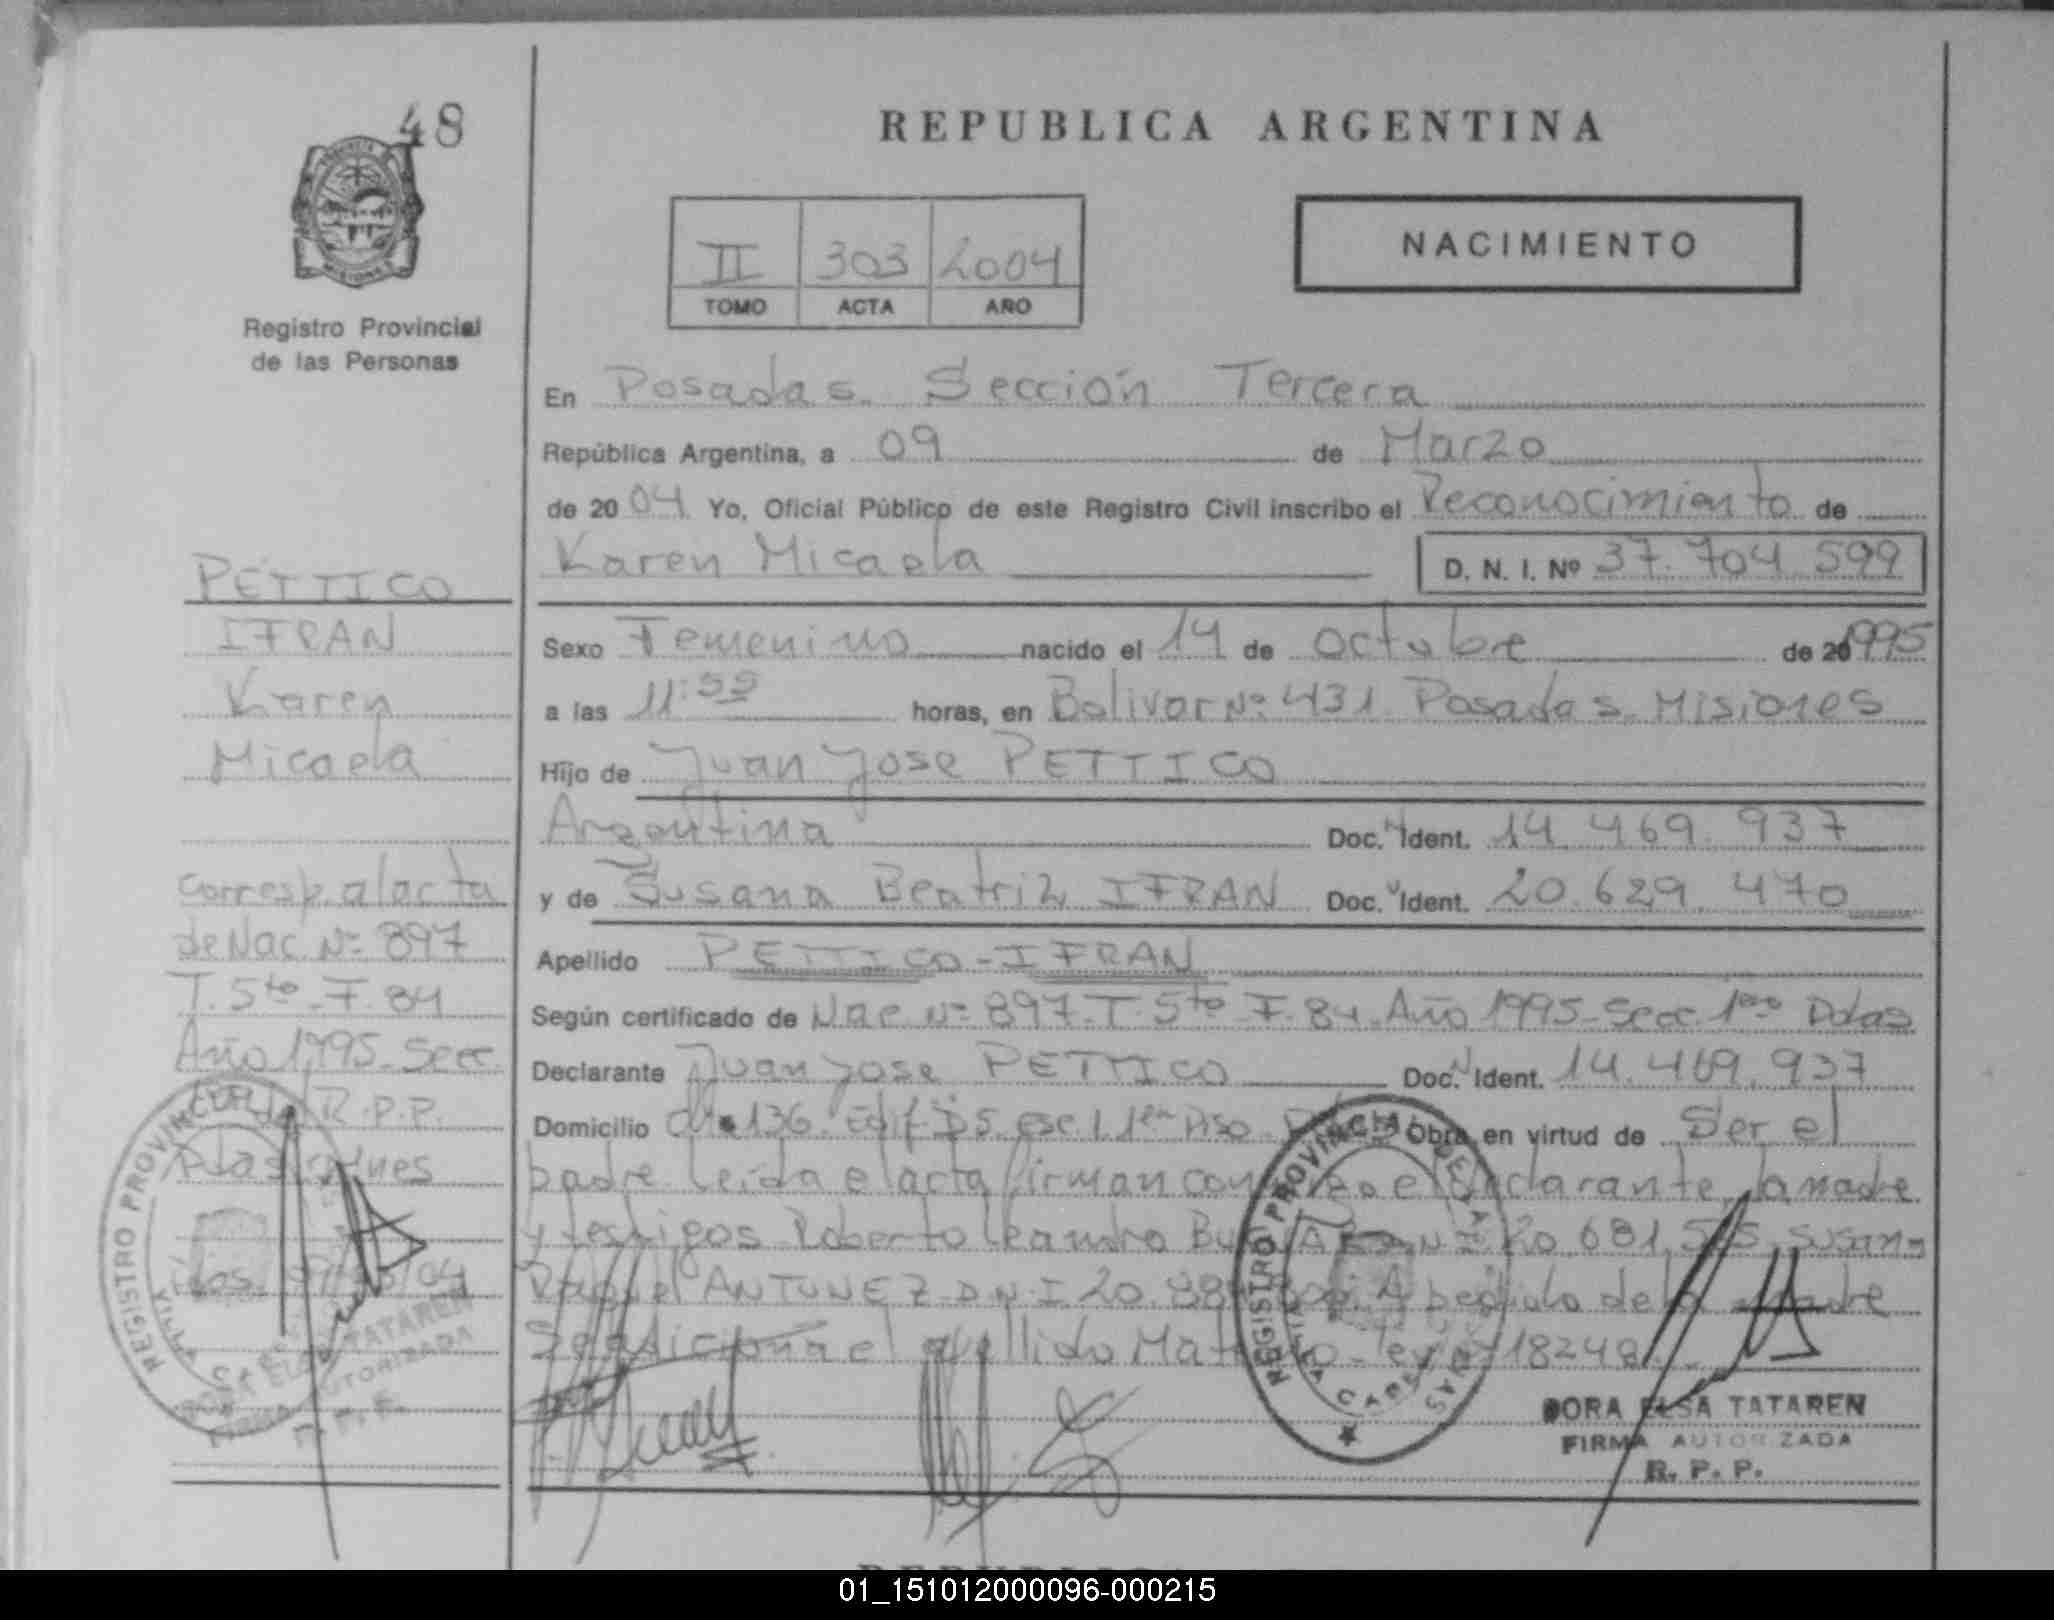 48
REPUBLICA ARGENTINA
NACIMIENTO
II 303 2004
TOMO ACTA AÑO
Registro Provincial
de las Personas
En Posadas. Sección Tercera
República Argentina, a 09 de Marzo
de 2004 Yo, Oficial Público de este Registro Civil inscribo el Reconocimiento de
Karen Micaela D. N. I. Nº 37.704.599
Sexo Femenino nacido el 14 de octubre de 1995
a las 11:55 horas, en Bolivar Nº 431 Posadas. Misiones
Hijo de Juan Jose PETTICO
Argentina Doc. Ident. 14.469.937
y de Susana Beatriz IFRAN Doc. Ident. 20.629.470
Apellido PETTICO-IFRAN
Según certificado de Nac Nº 897-T. 5to F. 84. Año 1995-Secc. 1era Pdas
Declarante Juan Jose PETTICO Doc. Ident. 14.469.937
Domicilio Ch. 136. Edif. esc 1 Piso Obra en virtud de Ser el
padre Leída el acta firman el declarante, la madre
y testigos Roberto Leandro 20.681. Susana
Raquel ANTUNEZ D.N.I 20. A pedido de la madre
Se adiciona el apellido Materno-ley 18248.
DORA ELSA TATAREN
FIRMA AUTORIZADA
R. P. P.
PETTICO
IFRAN
Karen
Micaela
Corresp. al acta
de Nac. Nº 897
T. 5to F. 84
Año 1995. Secc.
R.P.P.
REGISTRO PROVINCIAL DE LAS
VILLA CABELLO
DORA ELSA TATAREN
FIRMA AUTORIZADA
R. P. P.
REGISTRO PROVINCIAL DE LAS
VILLA CABELLO
01_151012000096-000215